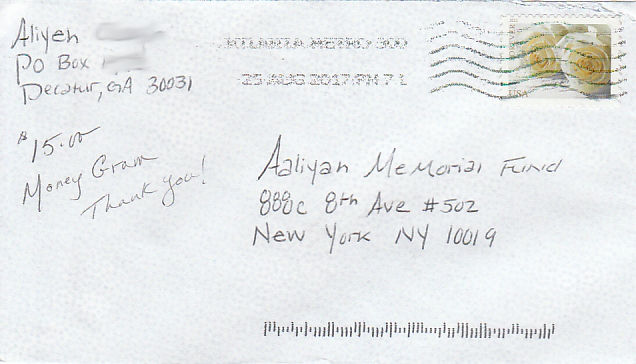 Aliyeh
PO Box
Decatur, GA 30031
ATLANTA METRO 300
25 AUG 2017 PM 7 L
USA
$15.00
Money Gram
Thank you!
Aaliyah Memorial Fund
888c 8th Ave #502
New York NY 10019